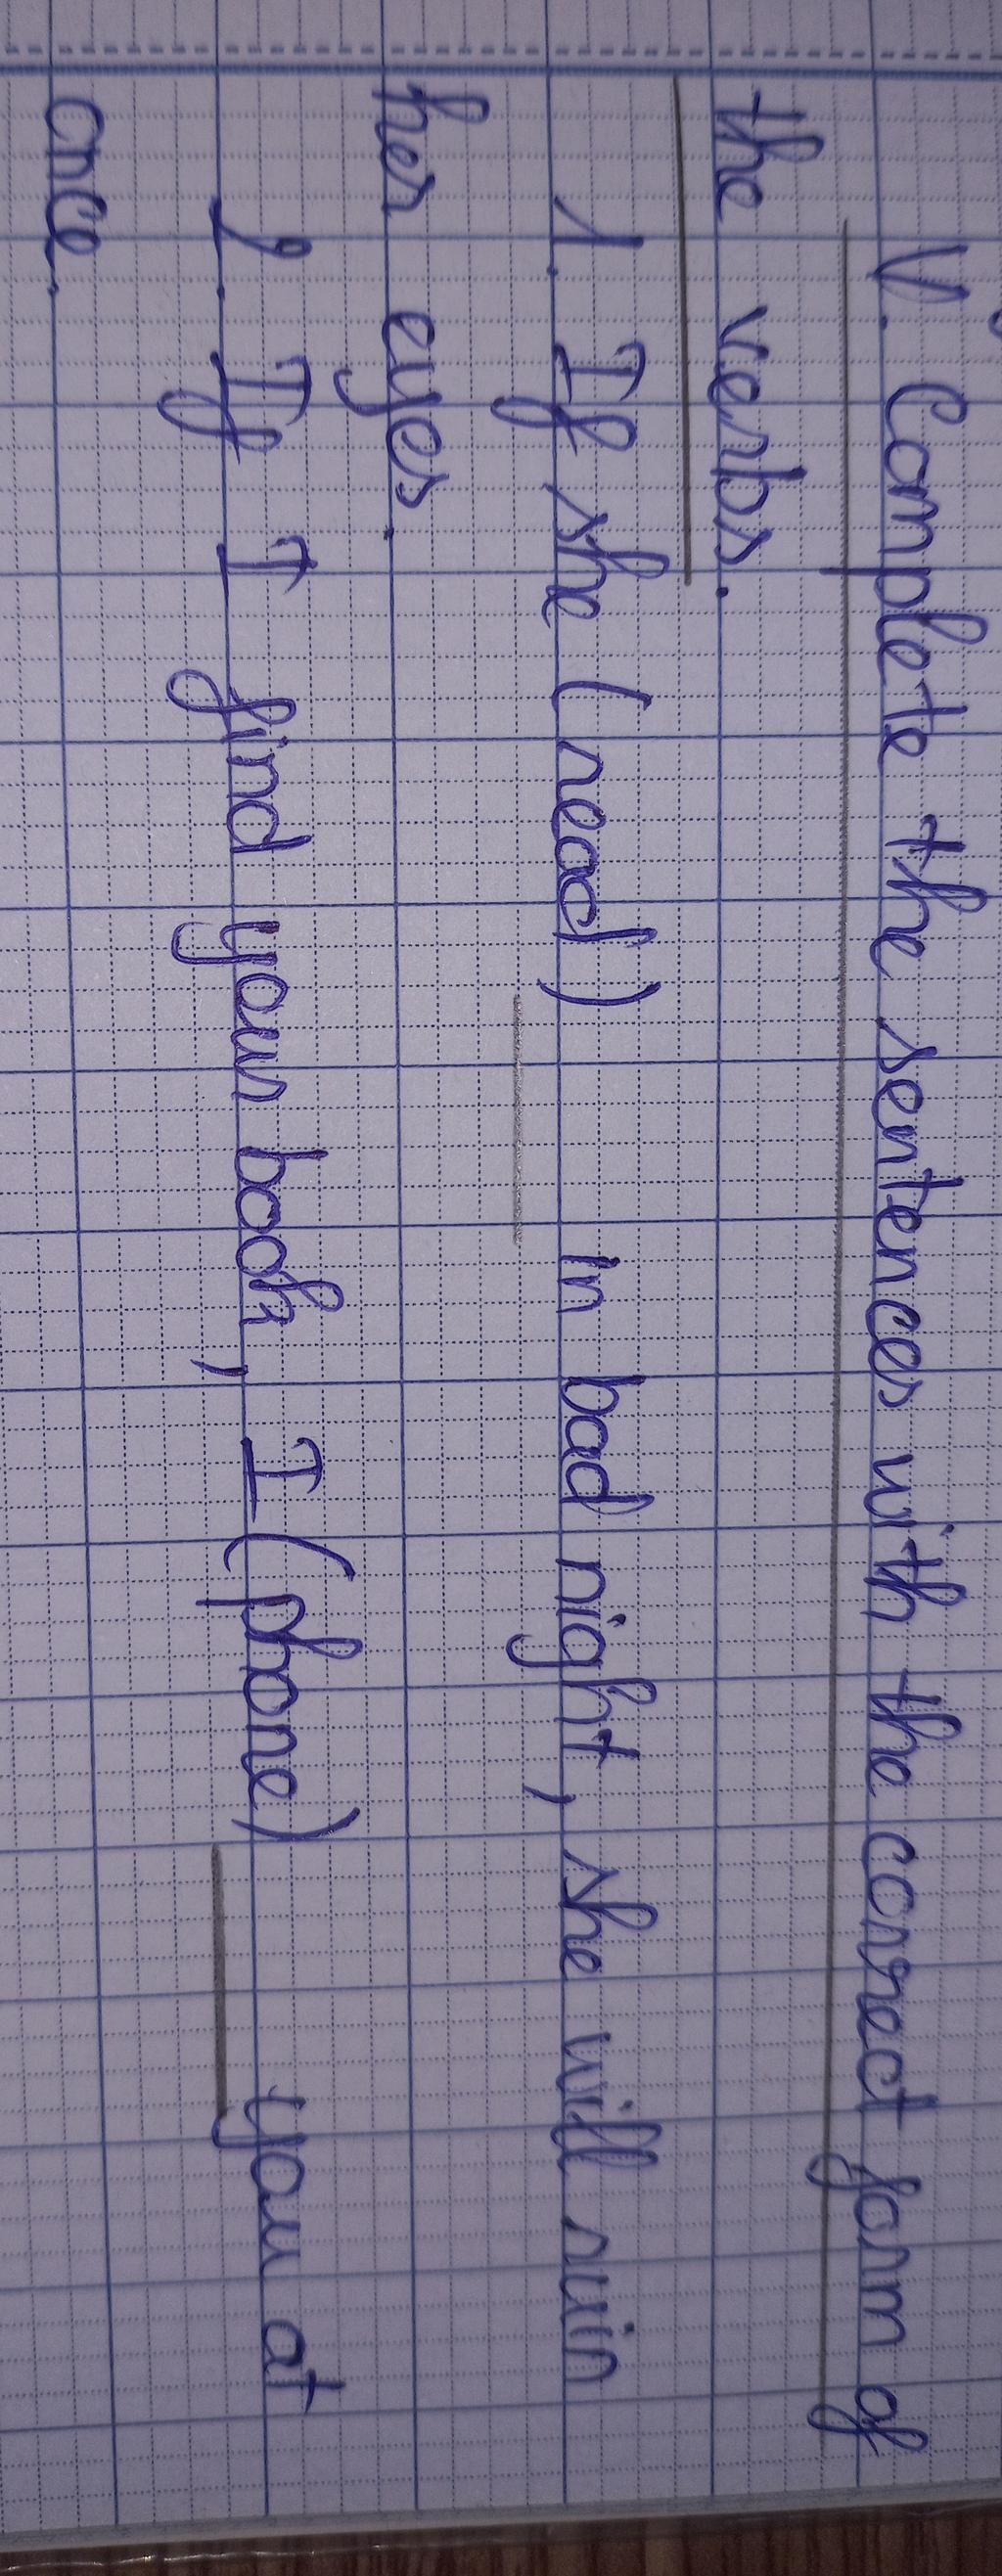 V. Complete the sentences with the correct form of
the verbs.
1. If she (read) ______ in bad night, she will ruin
her eyes.
2. If I find your book, I (phone) ______ you at
once.